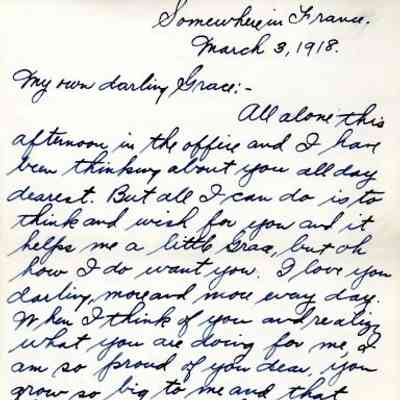 Somewhere in France.
March 3, 1918.
My own darling Grace:-
All alone this
afternoon in the office and I have
been thinking about you all day
dearest. But all I can do is to
think and wish for you and it
helps me a little Grace, but oh
how I do want you. I love you
darling, more and more every day.
When I think of you and realize
what you are doing for me, I
am so proud of you dear, you
grow so big to me and that